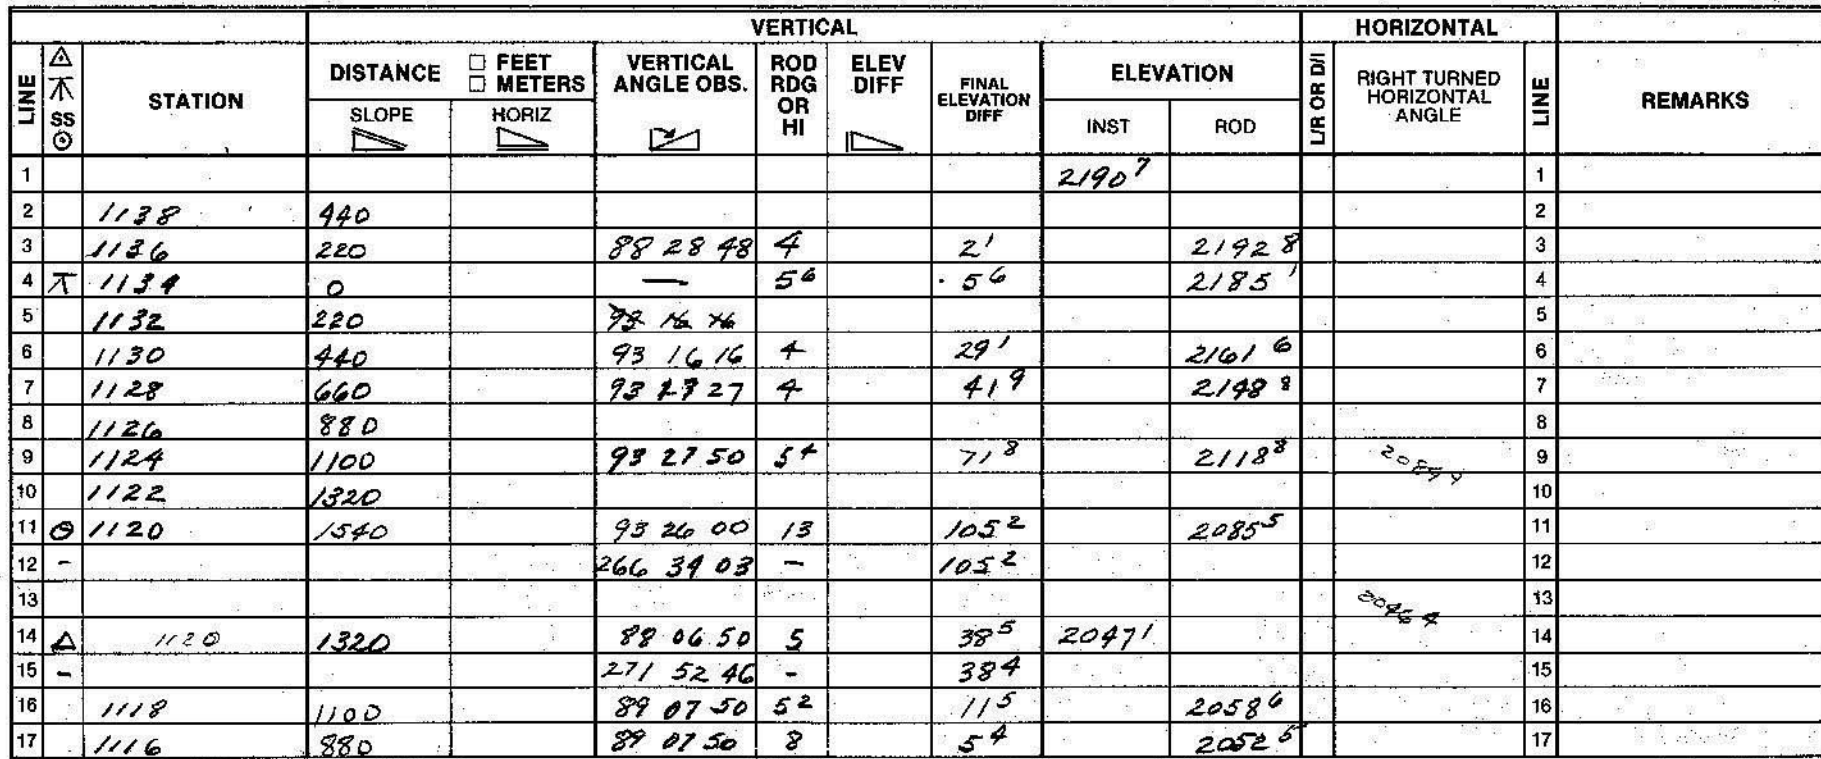 VERTICAL HORIZONTAL
LINE SS STATION DISTANCE FEET METERS SLOPE HORIZ VERTICAL ANGLE OBS. ROD RDG OR HI ELEV DIFF FINAL ELEVATION DIFF ELEVATION INST ROD L/R OR D/I RIGHT TURNED HORIZONTAL ANGLE LINE REMARKS
1 2190 7 1
2 1138 440 2
3 1136 220 88 28 48 4 2 1 2192 8 3
4 1134 0 — 5 6 . 5 6 2185 1 4
5 1132 220 5
6 1130 440 93 16 16 4 29 1 2161 6 6
7 1128 660 93 27 4 41 9 2148 8 7
8 1126 880 8
9 1124 1100 93 27 50 5 4 71 8 2118 8 9
10 1122 1320 10
11 1120 1540 93 26 00 13 105 2 2085 5 11
12 - 266 34 03 - 105 2 12
13 2046 4 13
14 1120 1320 88 06 50 5 38 5 2047 1 14
15 - 271 52 46 - 38 4 15
16 1118 1100 89 07 50 5 2 11 5 2058 6 16
17 1116 880 89 07 50 8 5 4 2052 5 17